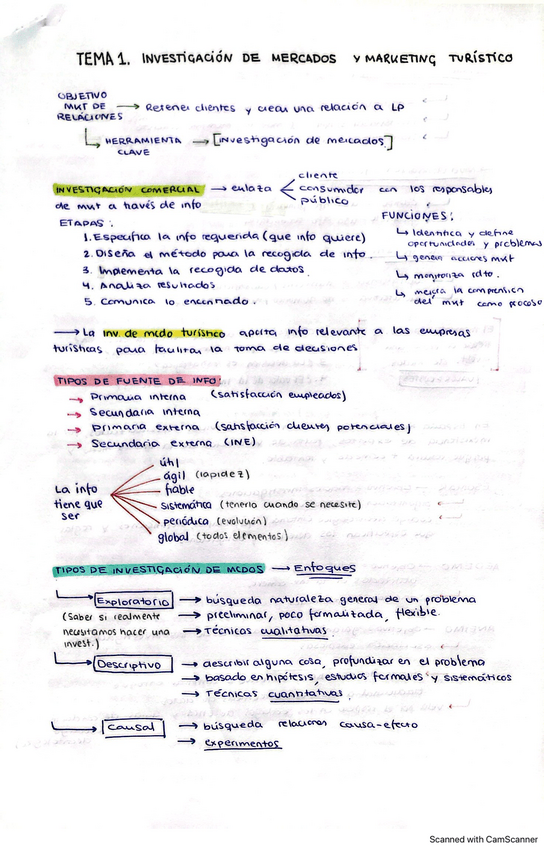 TEMA 1. INVESTIGACIÓN DE MERCADOS Y MARKETING TURÍSTICO
OBJETIVO
MKT DE
RELACIONES → Retener clientes y crear una relación a LP
HERRAMIENTA
CLAVE → [Investigación de mercados]
INVESTIGACIÓN COMERCIAL → enlaza
cliente
consumidor
público
con los responsables
de mkt a través de info
ETAPAS:
1. Especifica la info requerida (que info quiere)
2. Diseña el método para la recogida de info.
3. Implementa la recogida de datos.
4. Analiza resultados
5. Comunica lo encontrado.
FUNCIONES:
↳ Identifica y define
oportunidades y problemas
↳ genera acciones mkt
↳ monitoriza rdto.
↳ mejora la comprensión
del mkt como proceso
→ La inv. de mcdo turístico aporta info relevante a las empresas
turísticas para facilitar la toma de decisiones
TIPOS DE FUENTE DE INFO:
→ Primaria interna (satisfacción empleados)
→ Secundaria interna
→ Primaria externa (satisfacción clientes potenciales)
→ Secundaria externa (INE)
La info
tiene que
ser
útil
ágil (rapidez)
fiable
sistemática (tenerla cuando se necesite)
periódica (evolución)
global (todos elementos)
TIPOS DE INVESTIGACIÓN DE MCDOS → Enfoques
Exploratorio → búsqueda naturaleza general de un problema
(Saber si realmente
necesitamos hacer una
invest.)
→ preeliminar, poco formalizada, flexible.
→ Técnicas cualitativas.
Descriptivo → describir alguna cosa, profundizar en el problema
→ basado en hipótesis, estudios formales y sistemáticos
→ Técnicas cuantitativas.
Causal → búsqueda relaciones causa-efecto
→ experimentos
Scanned with CamScanner